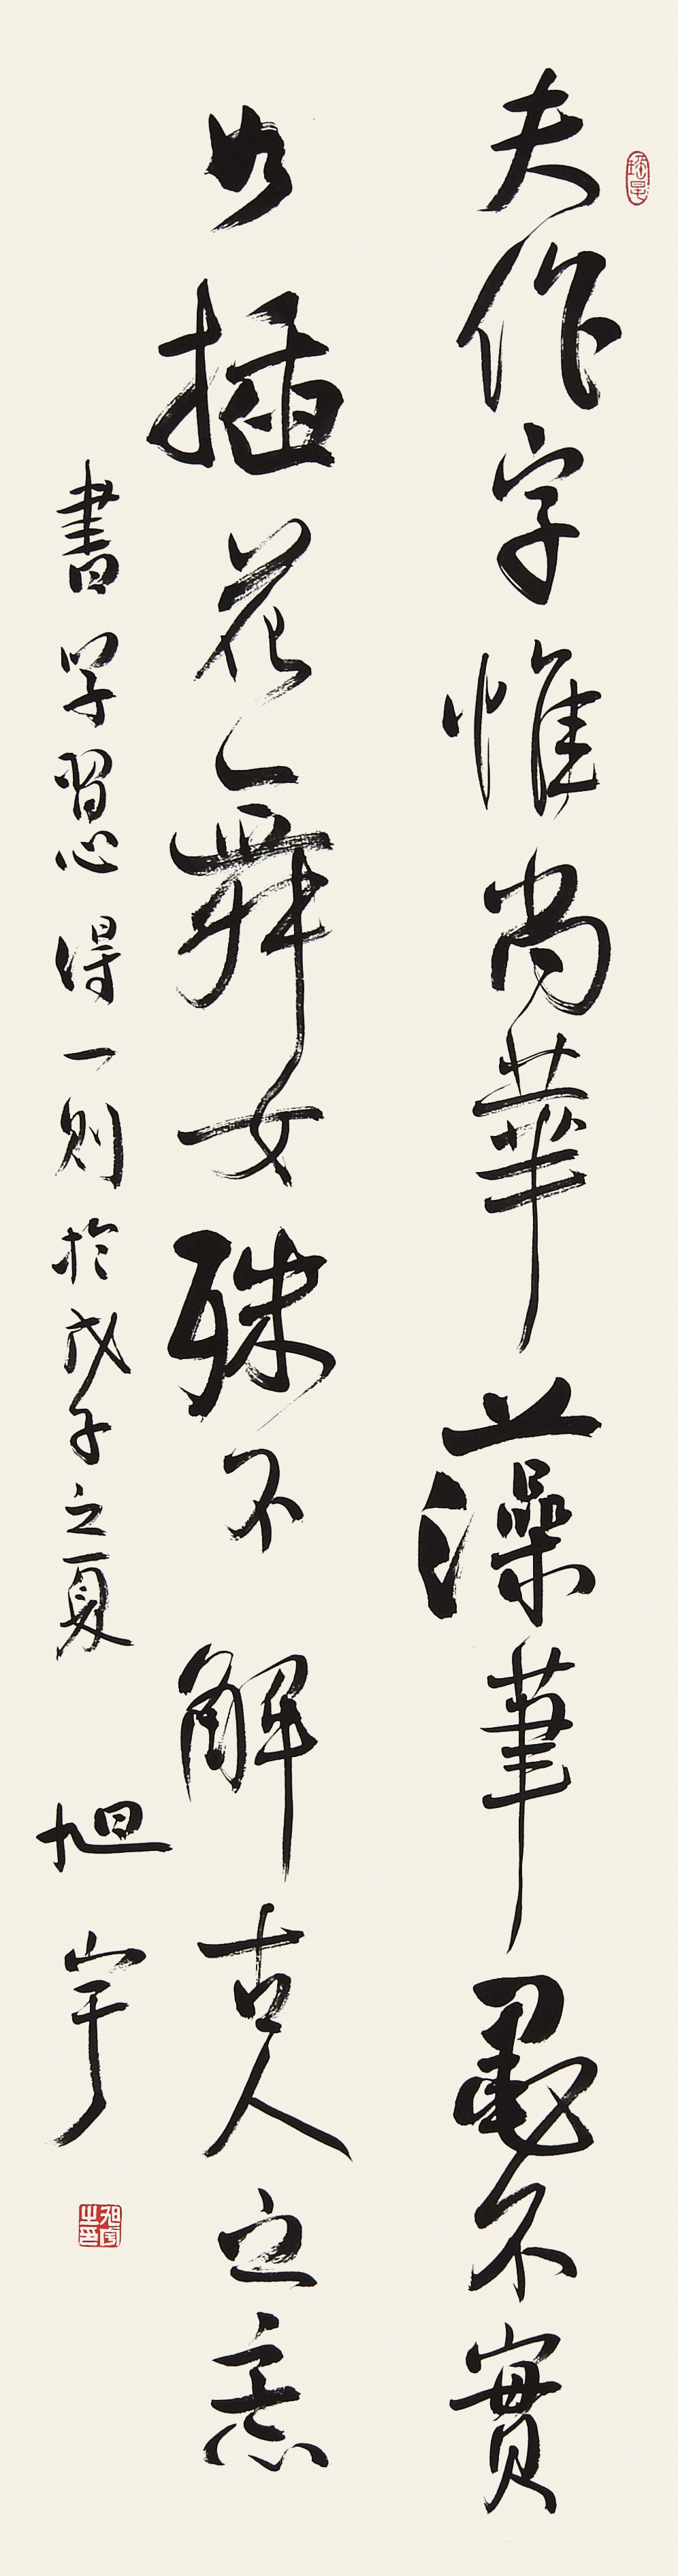 夫作字惟尚華藻筆墨不實
如插花舞女殊不解古人之意
書学習心得一則於戊子之夏 旭宇
旭宇之印